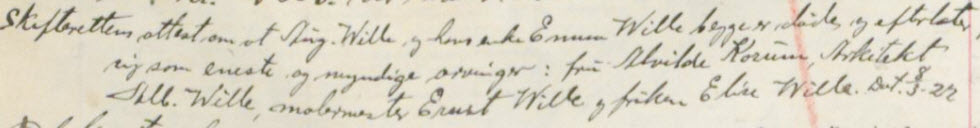 Skifterettens attest om at Aug. Wille og hans enke Emma Wille begge er døde, og efterlater
sig som eneste og myndige arvinger: fru Alvilde Korum, Arkitekt
Alb. Wille, malermester Ernst Wille og frøken Elise Wille. Dat. 8/3-27